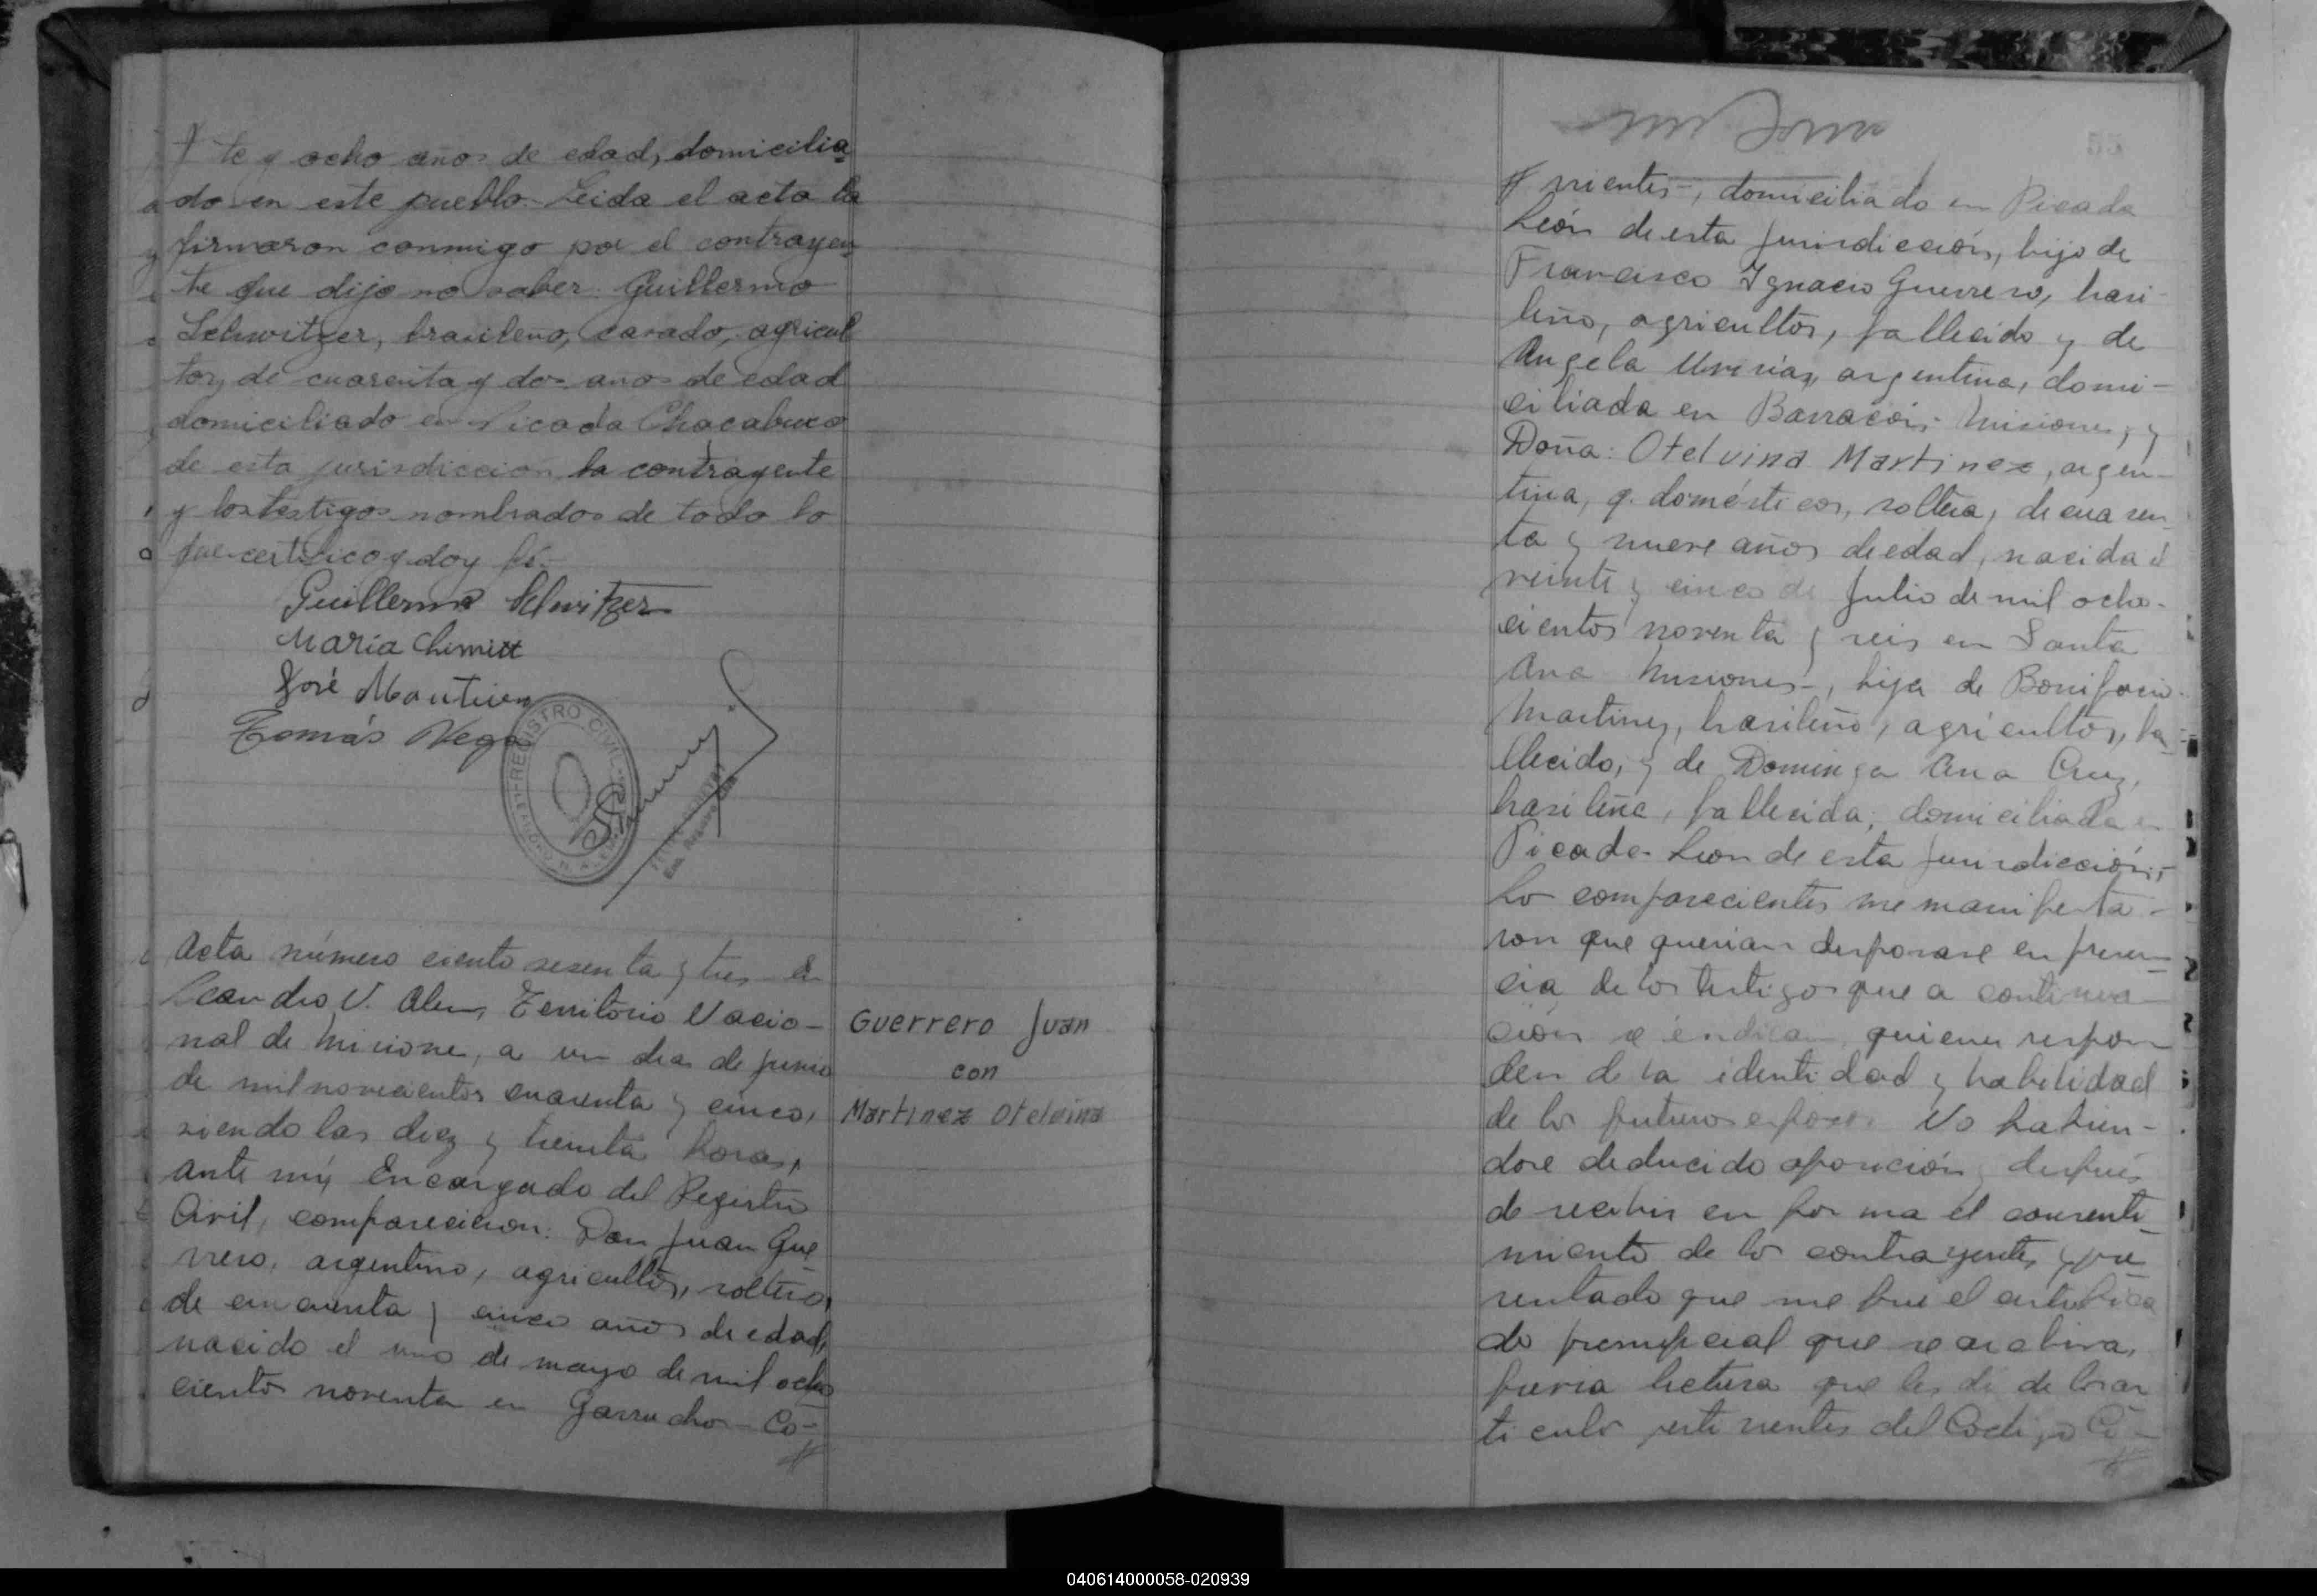 te y ocho años de edad, domicilia
do en este pueblo. Leida el acta la
firmaron conmigo por el contrayen
te que dijo no saber Guillermo
Schwitzer, brasileno, casado, agricul
tor, de cuarenta y dos años de edad
domiciliado en Picada Chacabuco
de esta jurisdiccion la contrayente
y los testigos nombrados de todo lo
que certifico y doy fé.
Guillermo Schwitzer
Maria
José
Tomás Vega
REGISTRO CIVIL
Acta número ciento sesenta y tres En
Leandro N. Alem, Territorio Nacio-
nal de Misiones, a un dia de junio
de mil novecientos cuarenta y cinco,
siendo las diez y treinta horas,
ante mi, Encargado del Registro
Civil, comparecieron: Don Juan Gue
rrero, argentino, agricultor, soltero,
de cincuenta y cinco años de edad,
nacido el uno de mayo de mil ocho
cientos noventa en Garruchos - Co-
Guerrero Juan
con
Martinez Otelvina
rrientes-, domiciliado en Picada
León de esta jurisdicción, hijo de
Francisco Ignacio Guerrero, brasi-
leño, agricultor, fallecido y de
Angela argentina, domi-
ciliada en Barracón - Misiones, y
Doña: Otelvina Martinez, argen-
tina, q. domésticos, soltera, de cuaren
ta y nueve años de edad, nacida el
veinte y cinco de Julio de mil ocho-
cientos noventa y seis en Santa
Ana Misiones-, hija de Bonifacio
Martinez, brasileño, agricultor, fa
llecido, y de Dominga Ana Cruz,
brasileña, fallecida, domiciliada en
Picada Leon de esta jurisdicción,-
Lo comparecientes me manifesta-
ron que querian desposarse en presen
cia de los testigos que a continua-
ción se indican, quienes respon
den de la identidad y habilidad
de los futuros esposos. No habien-
dose deducido oposición y después
de recibir en forma el consenti-
miento de los contrayentes y pre
sentado que me fue el certifica
do prenupcial que se archiva,
previa lectura que les di de los ar
ticulos pertinentes del Codigo Ci-
040614000058-020939